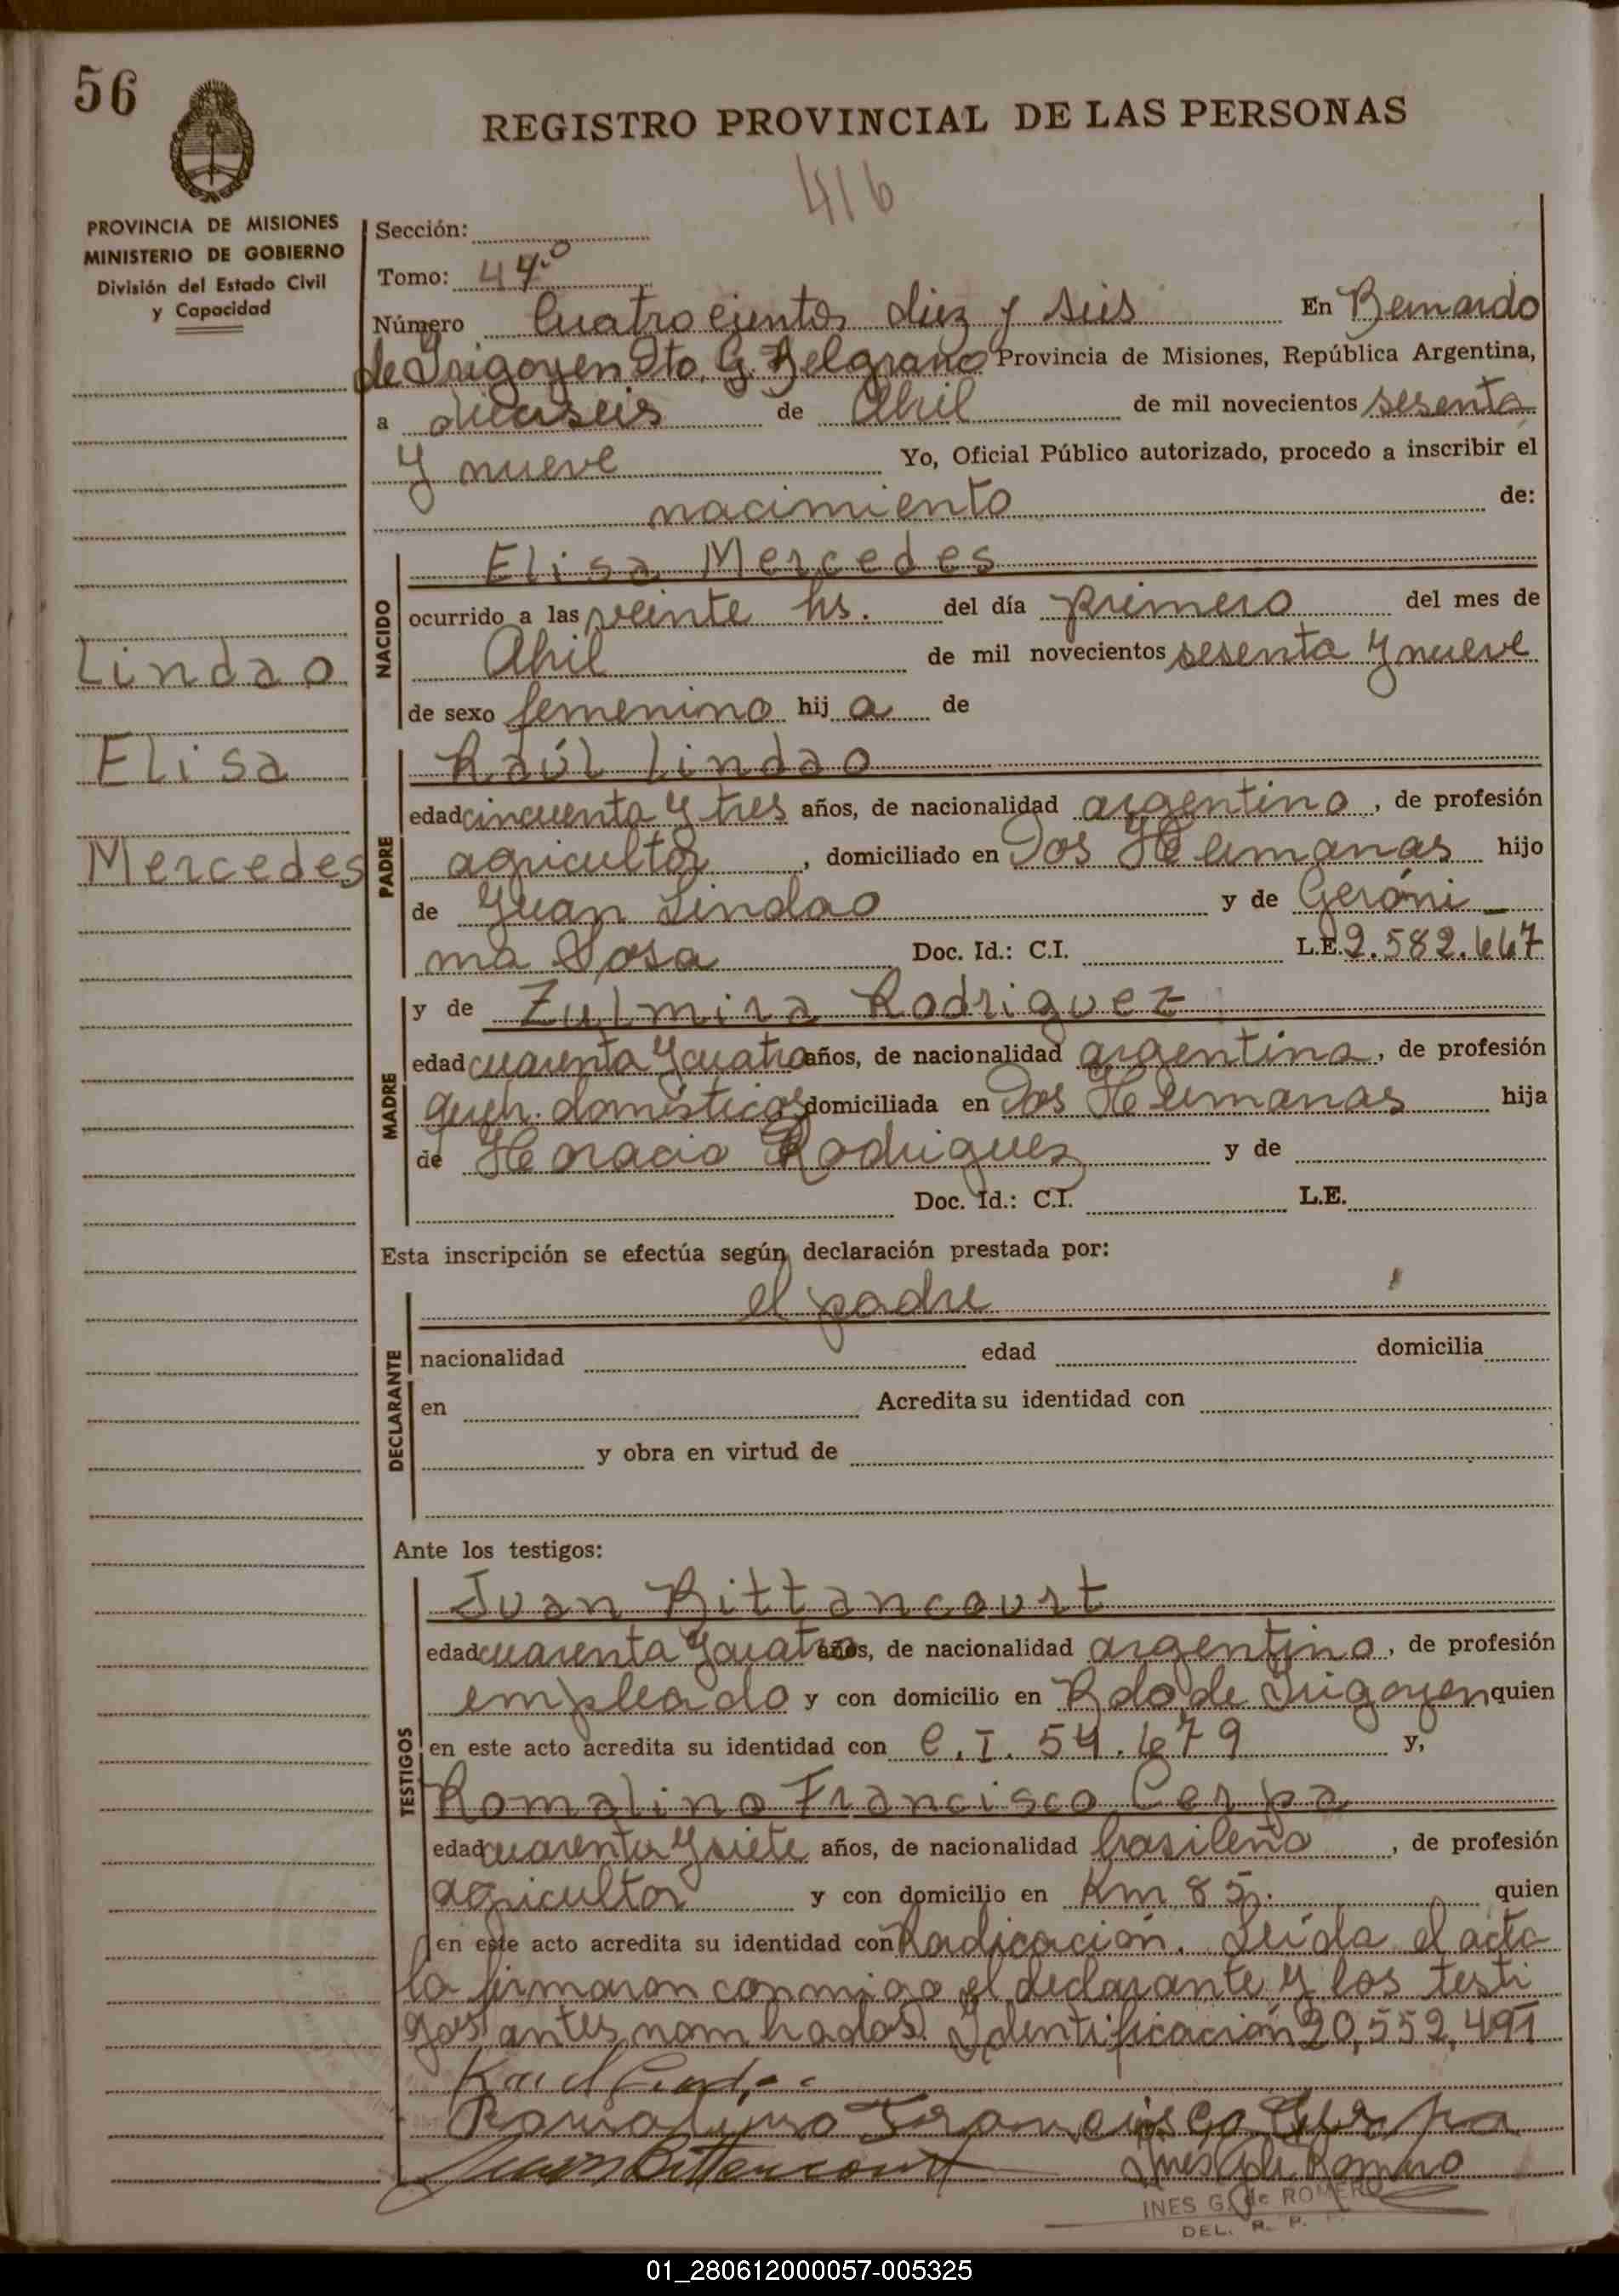 56
REGISTRO PROVINCIAL DE LAS PERSONAS
416
PROVINCIA DE MISIONES
MINISTERIO DE GOBIERNO
División del Estado Civil
y Capacidad
Sección:
Tomo: 44º
Número Cuatrocientos diez y seis En Bernardo
de Irigoyen Dto. G. Belgrano Provincia de Misiones, República Argentina,
a dieciseis de Abril de mil novecientos sesenta
y nueve Yo, Oficial Público autorizado, procedo a inscribir el
nacimiento de:
Lindao
Elisa
Mercedes
NACIDO
Elisa Mercedes
ocurrido a las veinte hs. del día primero del mes de
Abril de mil novecientos sesenta y nueve
de sexo femenino hij a de
PADRE
Raúl Lindao
edad cincuenta y tres años, de nacionalidad argentino, de profesión
agricultor, domiciliado en Dos Hermanas hijo
de Juan Lindao y de Geróni_
ma Sosa Doc. Id.: C.I. L.E. 2.582.667
MADRE
y de Zulmira Rodriguez
edad cuarenta y cuatro años, de nacionalidad argentina, de profesión
queh. domésticos domiciliada en Dos Hermanas hija
de Horacio Rodriguez y de
Doc. Id.: C.I. L.E.
Esta inscripción se efectúa según declaración prestada por:
DECLARANTE
el padre
nacionalidad edad domicilia
en Acredita su identidad con
y obra en virtud de
Ante los testigos:
TESTIGOS
Juan Bittancourt
edad cuarenta y cuatro años, de nacionalidad argentino, de profesión
empleado y con domicilio en Bdo de Irigoyen quien
en este acto acredita su identidad con C.I. 54.679 y,
Romalino Francisco Cerpa
edad cuarenta y siete años, de nacionalidad brasileño, de profesión
agricultor y con domicilio en Km 85. quien
en este acto acredita su identidad con Radicación. Leída el acta
la firmaron conmigo el declarante y los testi
gos antes nombrados. Identificación 20,552,491
Juan Bittencourt
INES G. de ROMERO
DEL. R. P.
01_280612000057-005325